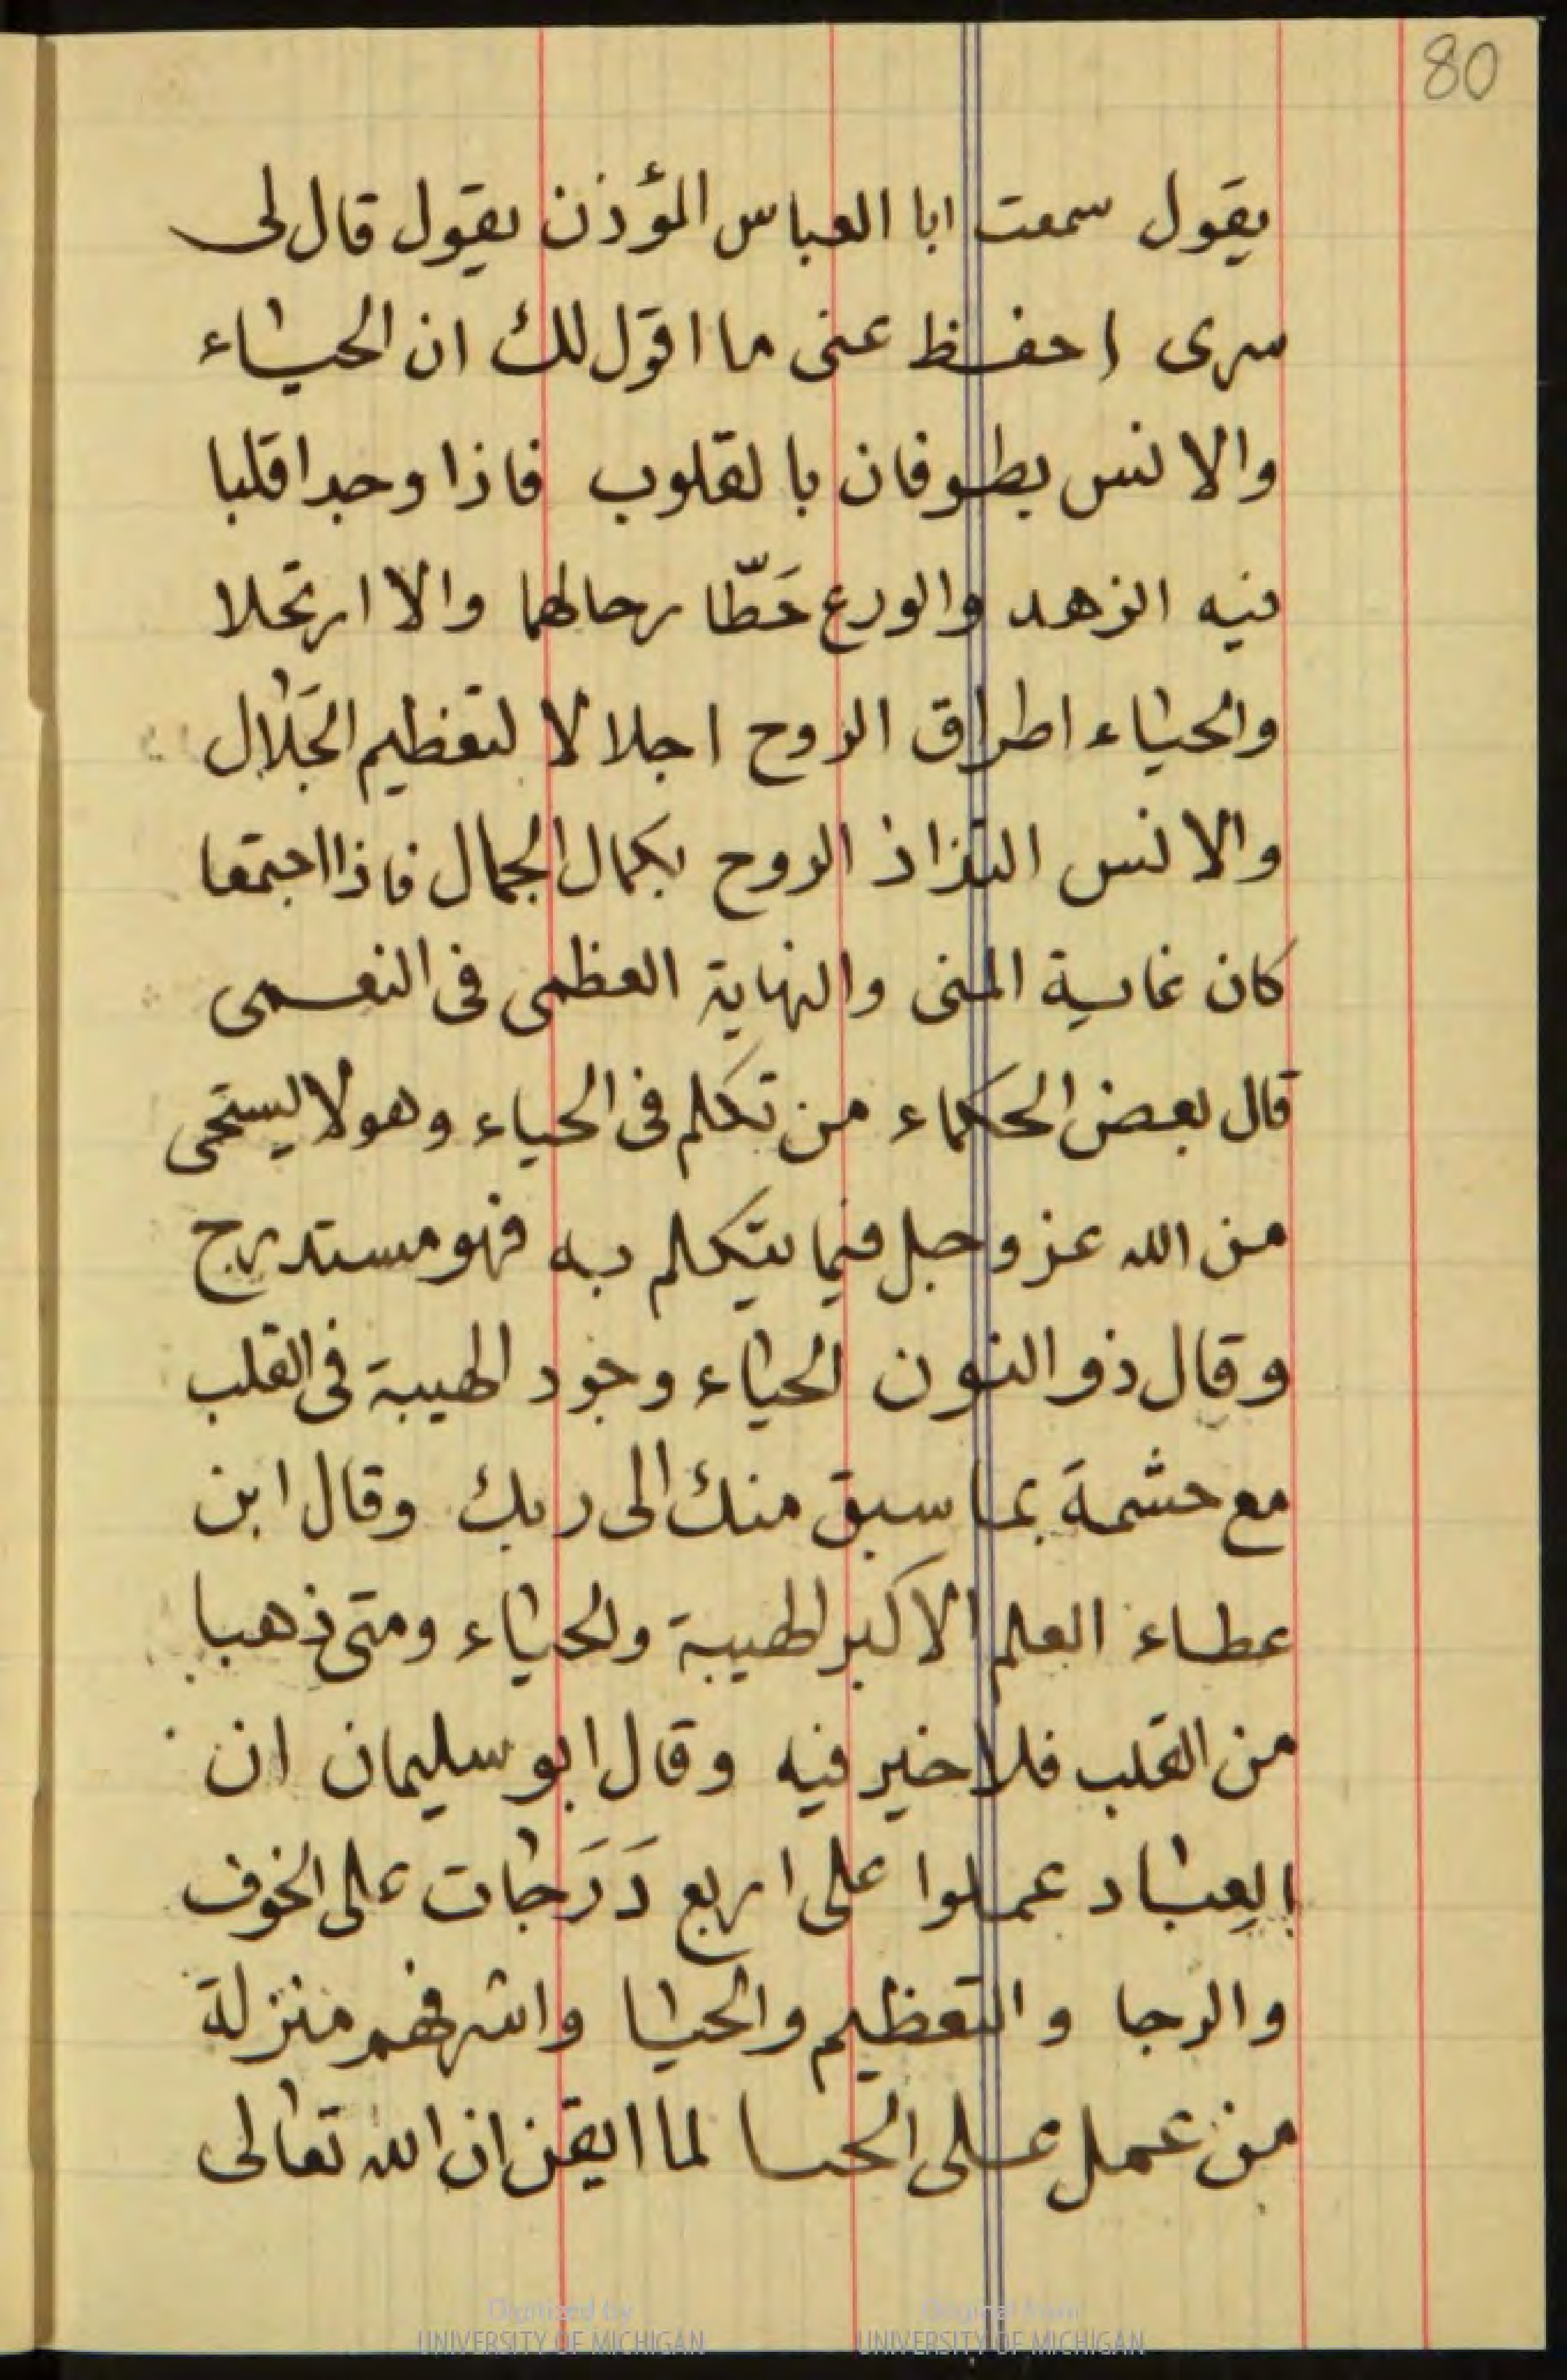 80
يقول سمعت ابا العباس المؤذن يقول قال لى
سرى احفظ عنى ما اقول لك ان الحياء
والانس يطوفان بالقلوب فاذا وجدا قلبا
فيه الزهد والورع حَطّا رحالهما والا ارتحلا
والحياء اطراق الروح اجلالا لتعظيم الجَلال
والانس التذاذ الروح بكمال الجمال فاذا اجتمعا
كان غاية المنى والنهاية العظمى فى النعمى
قال بعض الحكماء من تكلم فى الحياء وهو لا يستحى
من الله عز وجل فيما يتكلم به فهو مستدرج
وقال ذو النون الحياء وجود الهيبة فى القلب
مع حشمة بما سبق منك الى ربك وقال ابن
عطاء العلم الاكبر الهيبة والحياء ومتى ذهبا
من القلب فلا خير فيه وقال ابو سليمان ان
العِباد عملوا على اربع دَرَجات على الخوف
والرجا والتعظيم والحيا واشرفهم منزلة
من عمل على الحيا لما ايقن ان الله تعالى
Digitized by
UNIVERSITY OF MICHIGAN
Original from
UNIVERSITY OF MICHIGAN